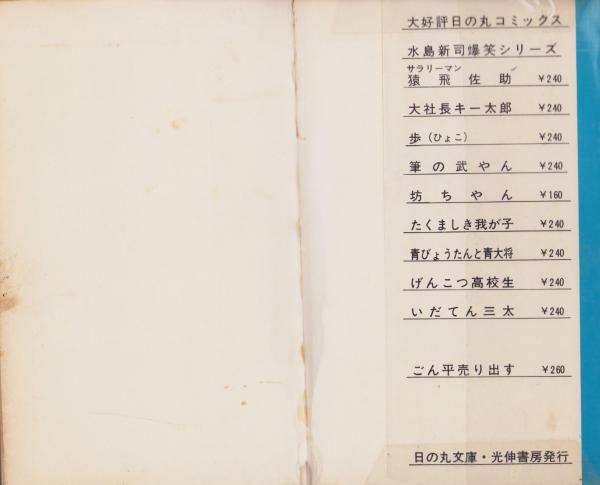 大好評日の丸コミックス
水島新司爆笑シリーズ
サラリーマン
猿飛佐助 ¥240
大社長キー太郎 ¥240
歩(ひょこ) ¥240
筆の武やん ¥240
坊ちやん ¥160
たくましき我が子 ¥240
青びょうたんと青大将 ¥240
げんこつ高校生 ¥240
いだてん三太 ¥240
ごん平売り出す ¥260
日の丸文庫・光伸書房発行